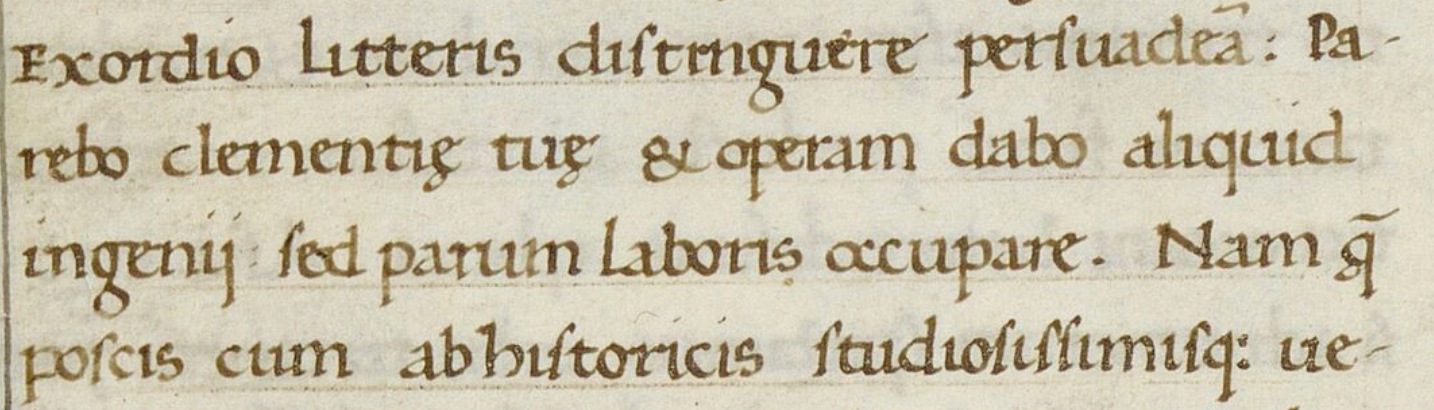 Exordio litteris distringuere persuadeā: Pa-
rebo clementię tuę & operam dabo aliquid
ingenij: sed parum laboris occupare. Nam q̄
poscis cum ab historicis studiosissimisq: ue-